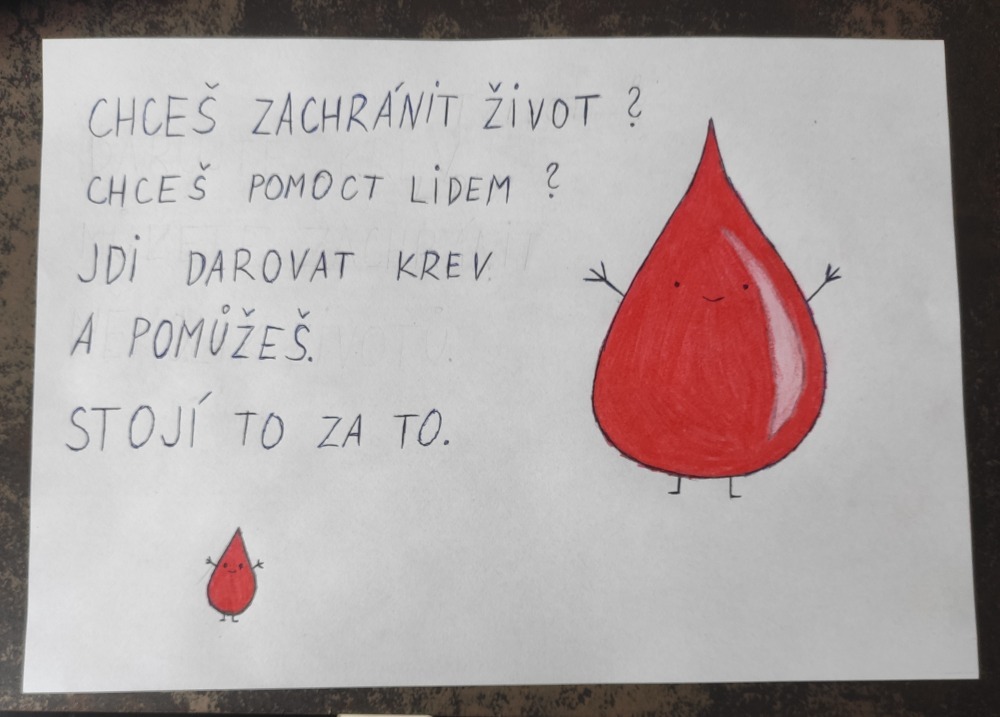 CHCEŠ ZACHRÁNIT ŽIVOT ?
CHCEŠ POMOCT LIDEM ?
JDI DAROVAT KREV
A POMŮŽEŠ.
STOJÍ TO ZA TO.